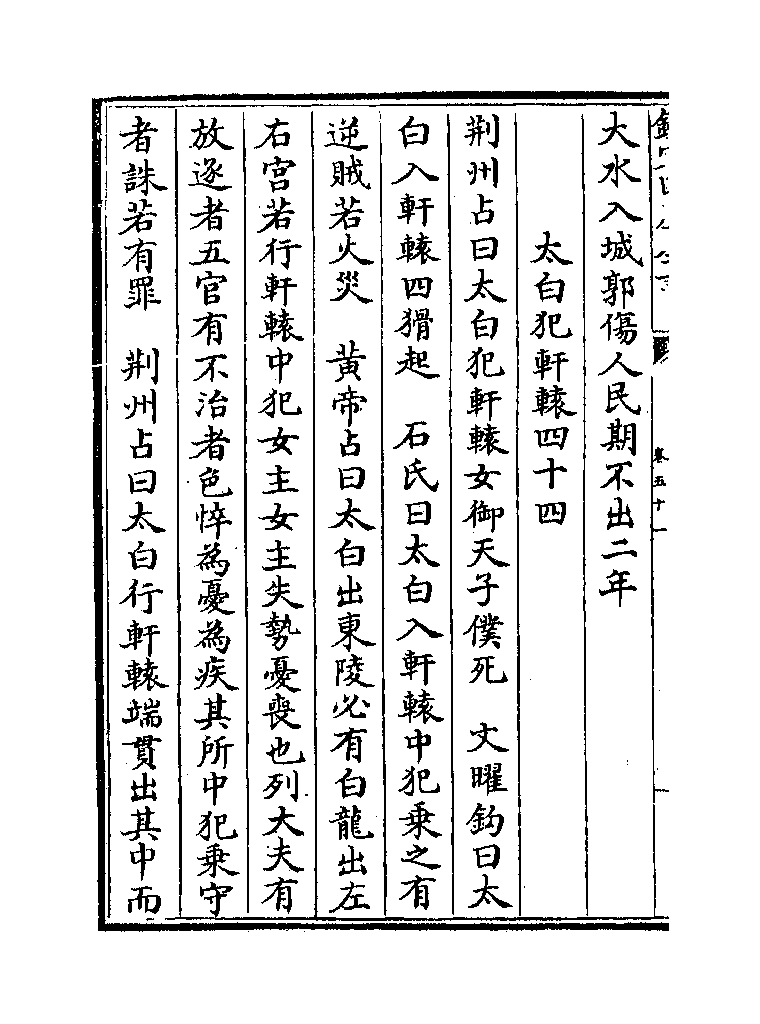 卷五十一
大水入城郭傷人民期不出二年
太白犯軒轅四十四
荆州占曰太白犯軒轅女御天子僕死　文曜鈎曰太
白入軒轅四猾起　石氏曰太白入軒轅中犯乗之有
逆賊若火災　黄帝占曰太白出東陵必有白龍出左
右宫若行軒轅中犯女主女主失勢憂喪也列大夫有
放逐者五官有不治者色悴為憂為疾其所中犯乗守
者誅若有罪　荆州占曰太白行軒轅端貫出其中而